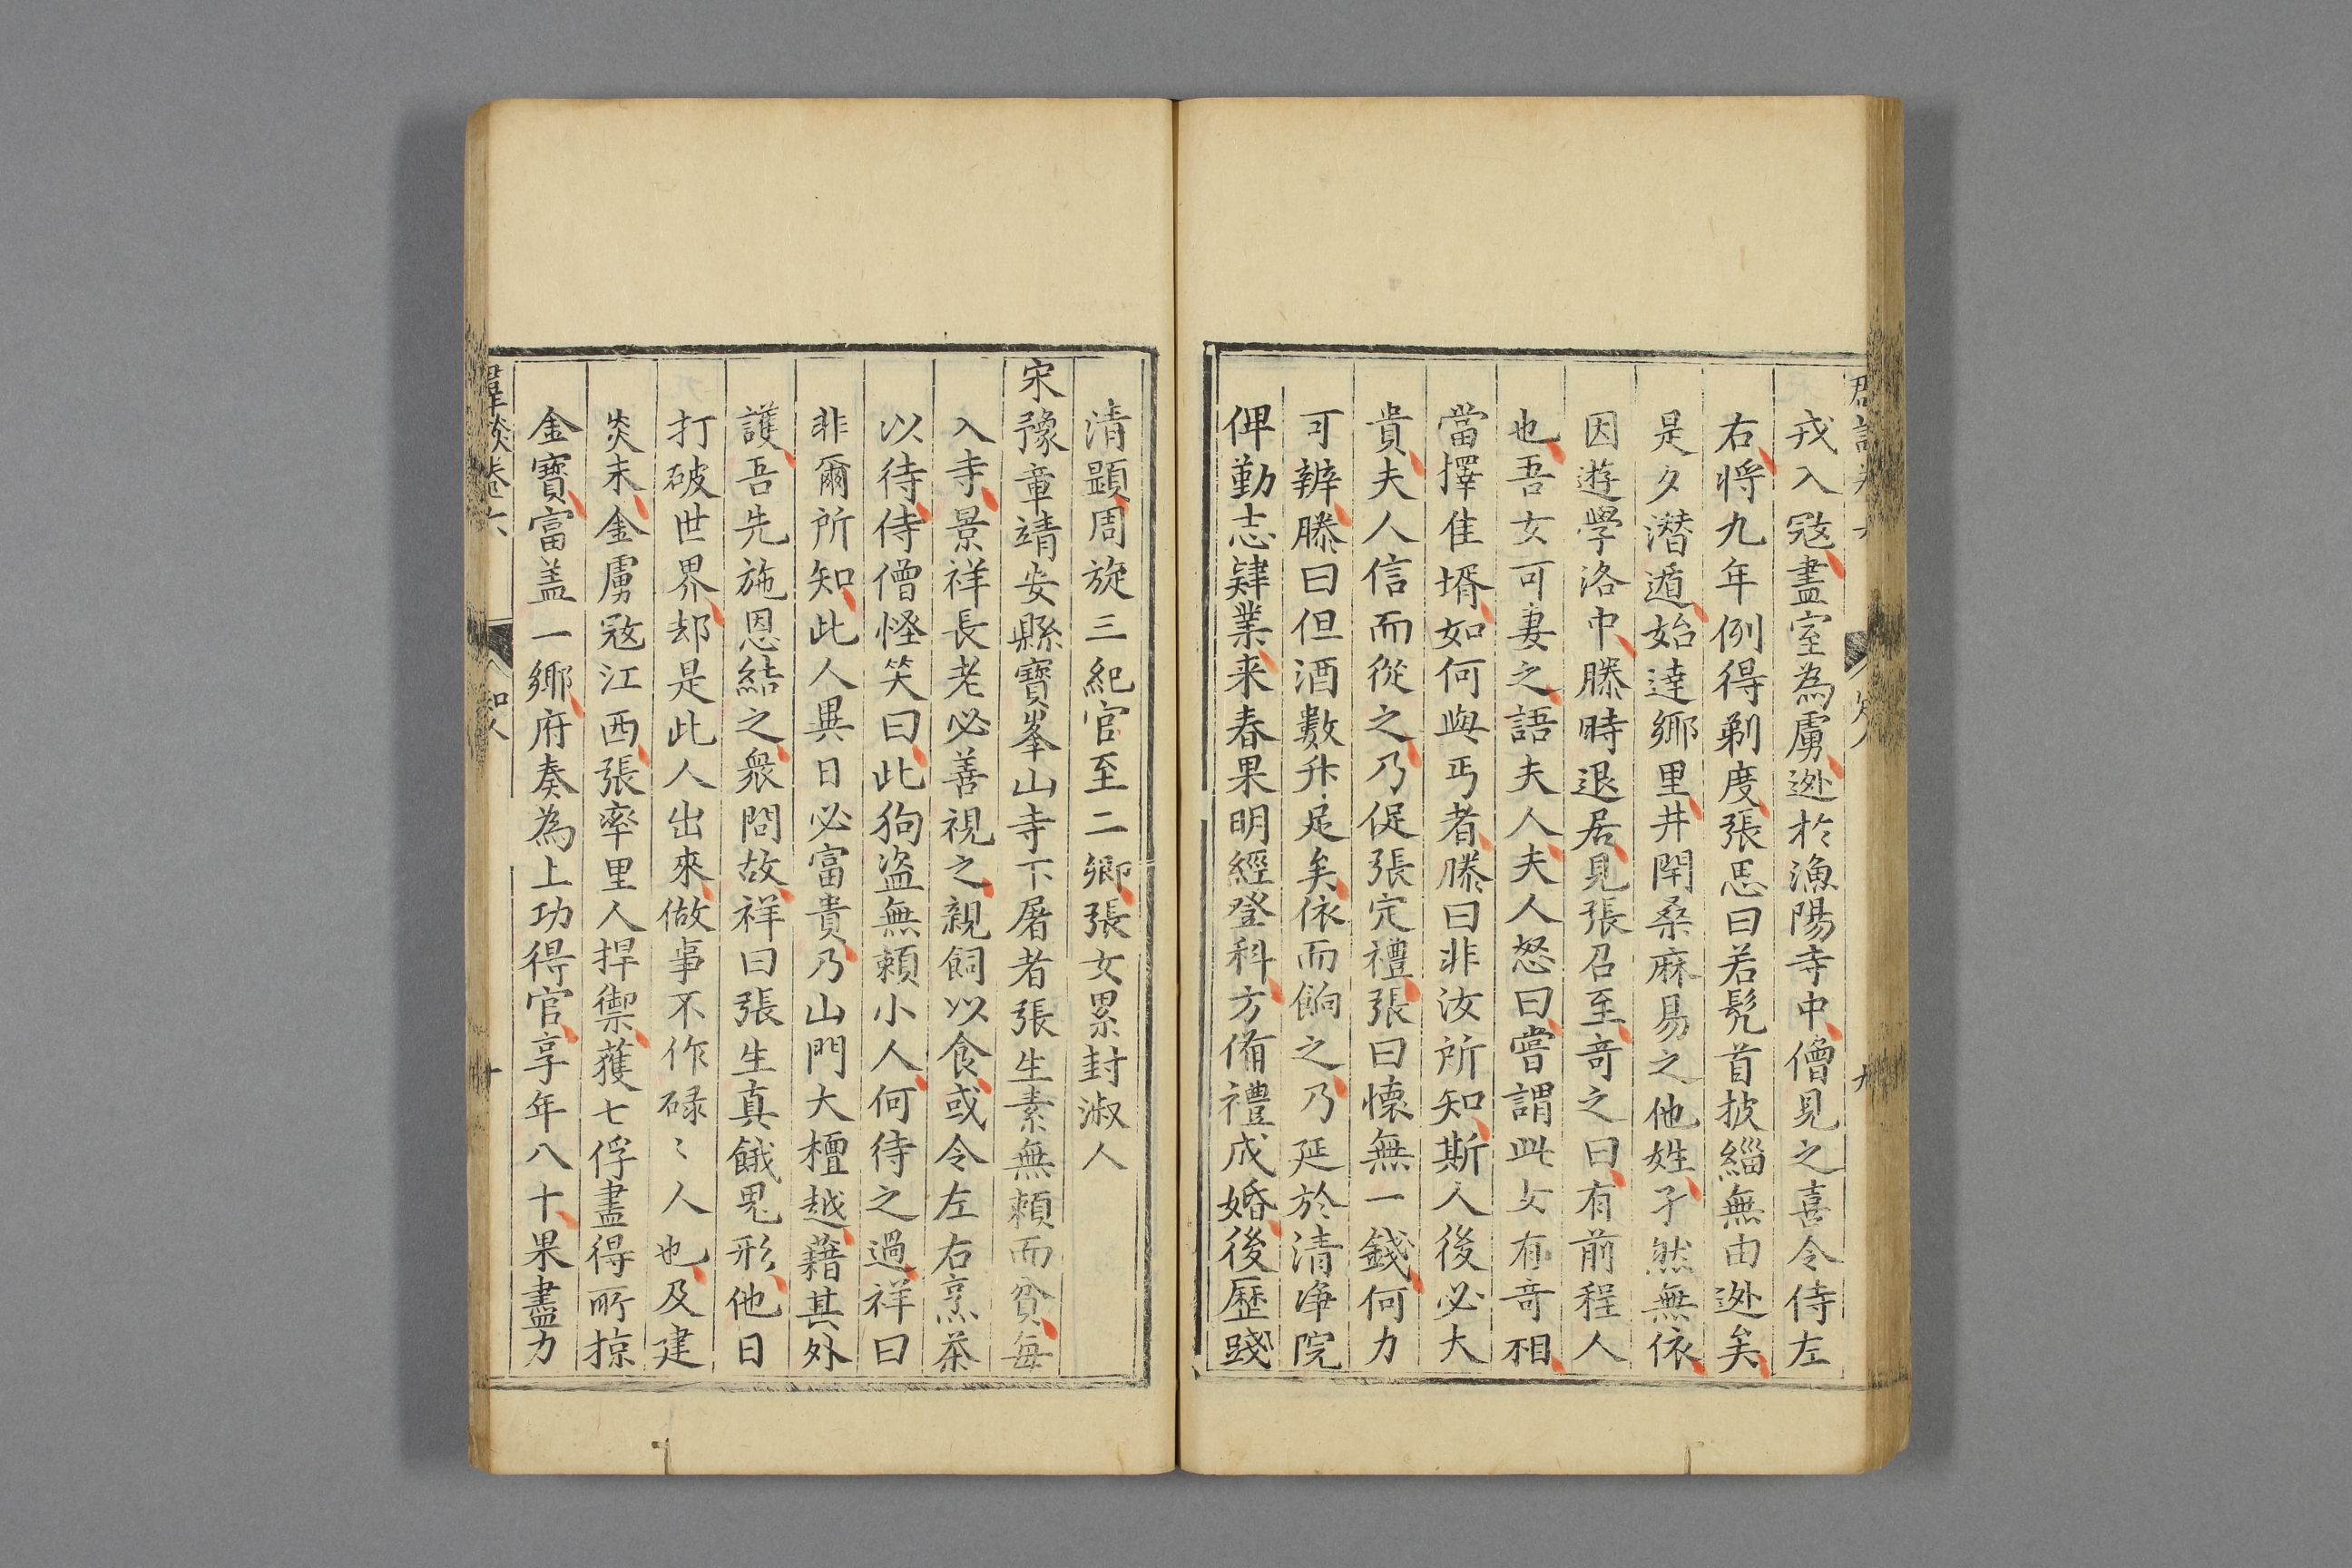 戎入冦盡室為虜逃於漁陽寺中僧見之喜令侍左
右將九年例得剃度張思曰若髠首披緇無由逃矣
是夕潜遁始達鄉里井閈桑麻易之他姓孑然無依
因遊學洛中滕時退居見張召至竒之曰有前程人
也吾女可妻之語夫人夫人怒曰嘗謂此女有竒相
當擇佳壻如何與丐者滕曰非汝所知斯人後必大
貴夫人信而從之乃促張定禮張曰懐無一錢何力
可辨滕曰但酒數升足矣依而餉之乃延於清淨院
俾勤志肄業来春果明經登科方脩禮成婚後歷踐
清顯周旋三紀官至二卿張女累封淑人
宋豫章靖安縣寶峯山寺下屠者張生素無頼而貧每
入寺景祥長老必善視之親飼以食或令左右烹茶
以待侍僧怪笑曰此狗盗無頼小人何待之過祥曰
非爾所知此人異日必富貴乃山門大檀越藉其外
護吾先施恩結之衆問故祥曰張生真餓鬼形他日
打破世界却是此人出來做事不作碌〻人也及建
炎末金虜冦江西張率里人捍禦獲七俘盡得所掠
金寶富盖一鄉府奏為上功得官享年八十果盡力
卷六
知人
十